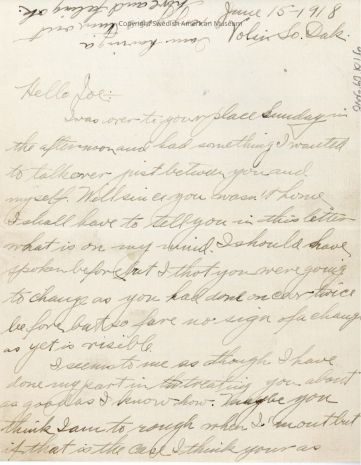 June 15-1918
Volin So. Dak.
Copyright Swedish American Museum
Hello Joe:-
I was over to your place Sunday in
the afternoon and had something I wanted
to talk over just between you and
myself. Well since you wasn't home
I shall have to tell you in this letter
what is on my mind. I should have
spoken before but I thot you were going
to change as you had done once or twice
before, but so fare no sign of a change
as yet is visible.
I seems to me as though I have
done my part in treating you about
as good as I know how. Maybe you
think I am to rough when I'm out but
if that is the case I think your as